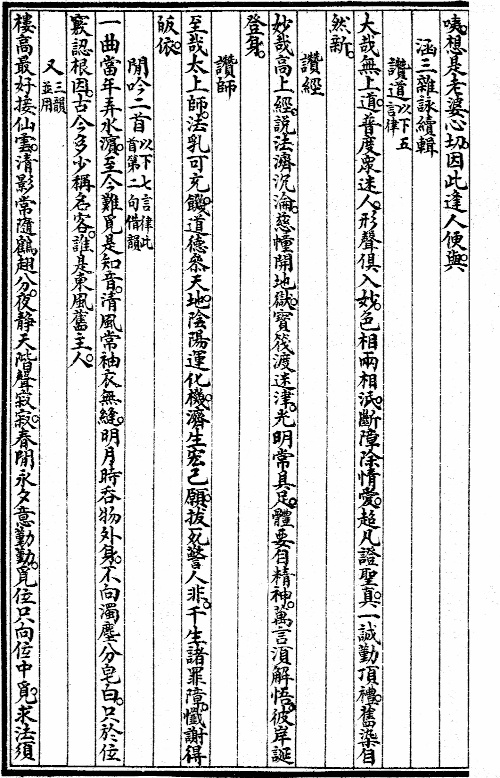 咦想是老婆心切因此逢人便與
涵三雜詠續輯
讚道以下五言律
大哉無上道普度衆迷人形聲俱入妙色相兩相泯斷障除情愛超凡證聖真一誠勤頂禮舊染自
然新
讚經
妙哉高上經說法濟沉淪慈幢開地獄寶筏渡迷津光明常具足體要自精神萬言須解悟彼岸誕
登身
讚師
至哉太上師法乳可充饑道德叅天地陰陽運化機濟生宏己願拔死警人非千生諸罪障懺謝得
皈依
閒吟二首以下七言律此首第二句借韻
一曲當年弄水濵至今難覓是知音清風常袖衣無縫明月時吞物外身不向濁塵分皂白只於位
竅認根因古今多少稱名客誰是東風舊主人
又三韻並用
樓高最好接仙雲清影常隨鶴翅分夜靜天階聲寂寂春閒永夕意勤勤覓位只向位中覓求法須